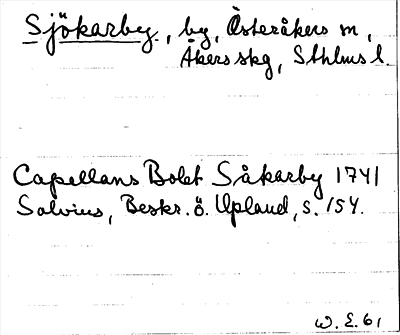 Sjökarby, by, Österåkers sn,
Åkers skg, Sthlms l.
Capellans Bolet Såkarby 1741
Salvius, Beskr. ö. Upland, s. 154.
W. E. 61